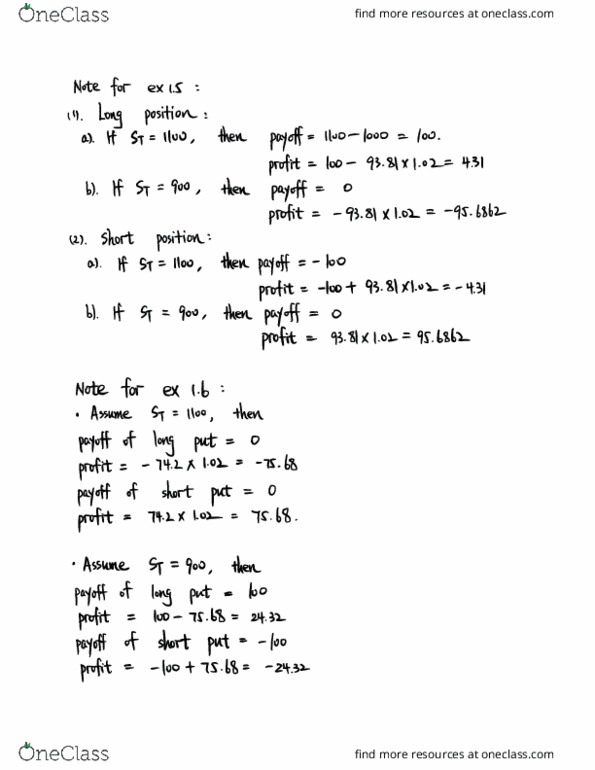 OneClass
find more resources at oneclass.com
Note for ex 1.5 :
(1). Long position :
a). If S_T = 1100, then payoff = 1100 - 1000 = 100.
profit = 100 - 93.81 x 1.02 = 4.31
b). If S_T = 900, then payoff = 0
profit = - 93.81 x 1.02 = -95.6862
(2). Short position :
a). If S_T = 1100, then payoff = - 100
profit = -100 + 93.81 x 1.02 = - 4.31
b). If S_T = 900, then payoff = 0
profit = 93.81 x 1.02 = 95.6862
Note for ex 1.6 :
• Assume S_T = 1100, then
payoff of long put = 0
profit = - 74.2 x 1.02 = -75.68
payoff of short put = 0
profit = 74.2 x 1.02 = 75.68.
• Assume S_T = 900, then
payoff of long put = 100
profit = 100 - 75.68 = 24.32
payoff of short put = -100
profit = -100 + 75.68 = -24.32
OneClass
find more resources at oneclass.com